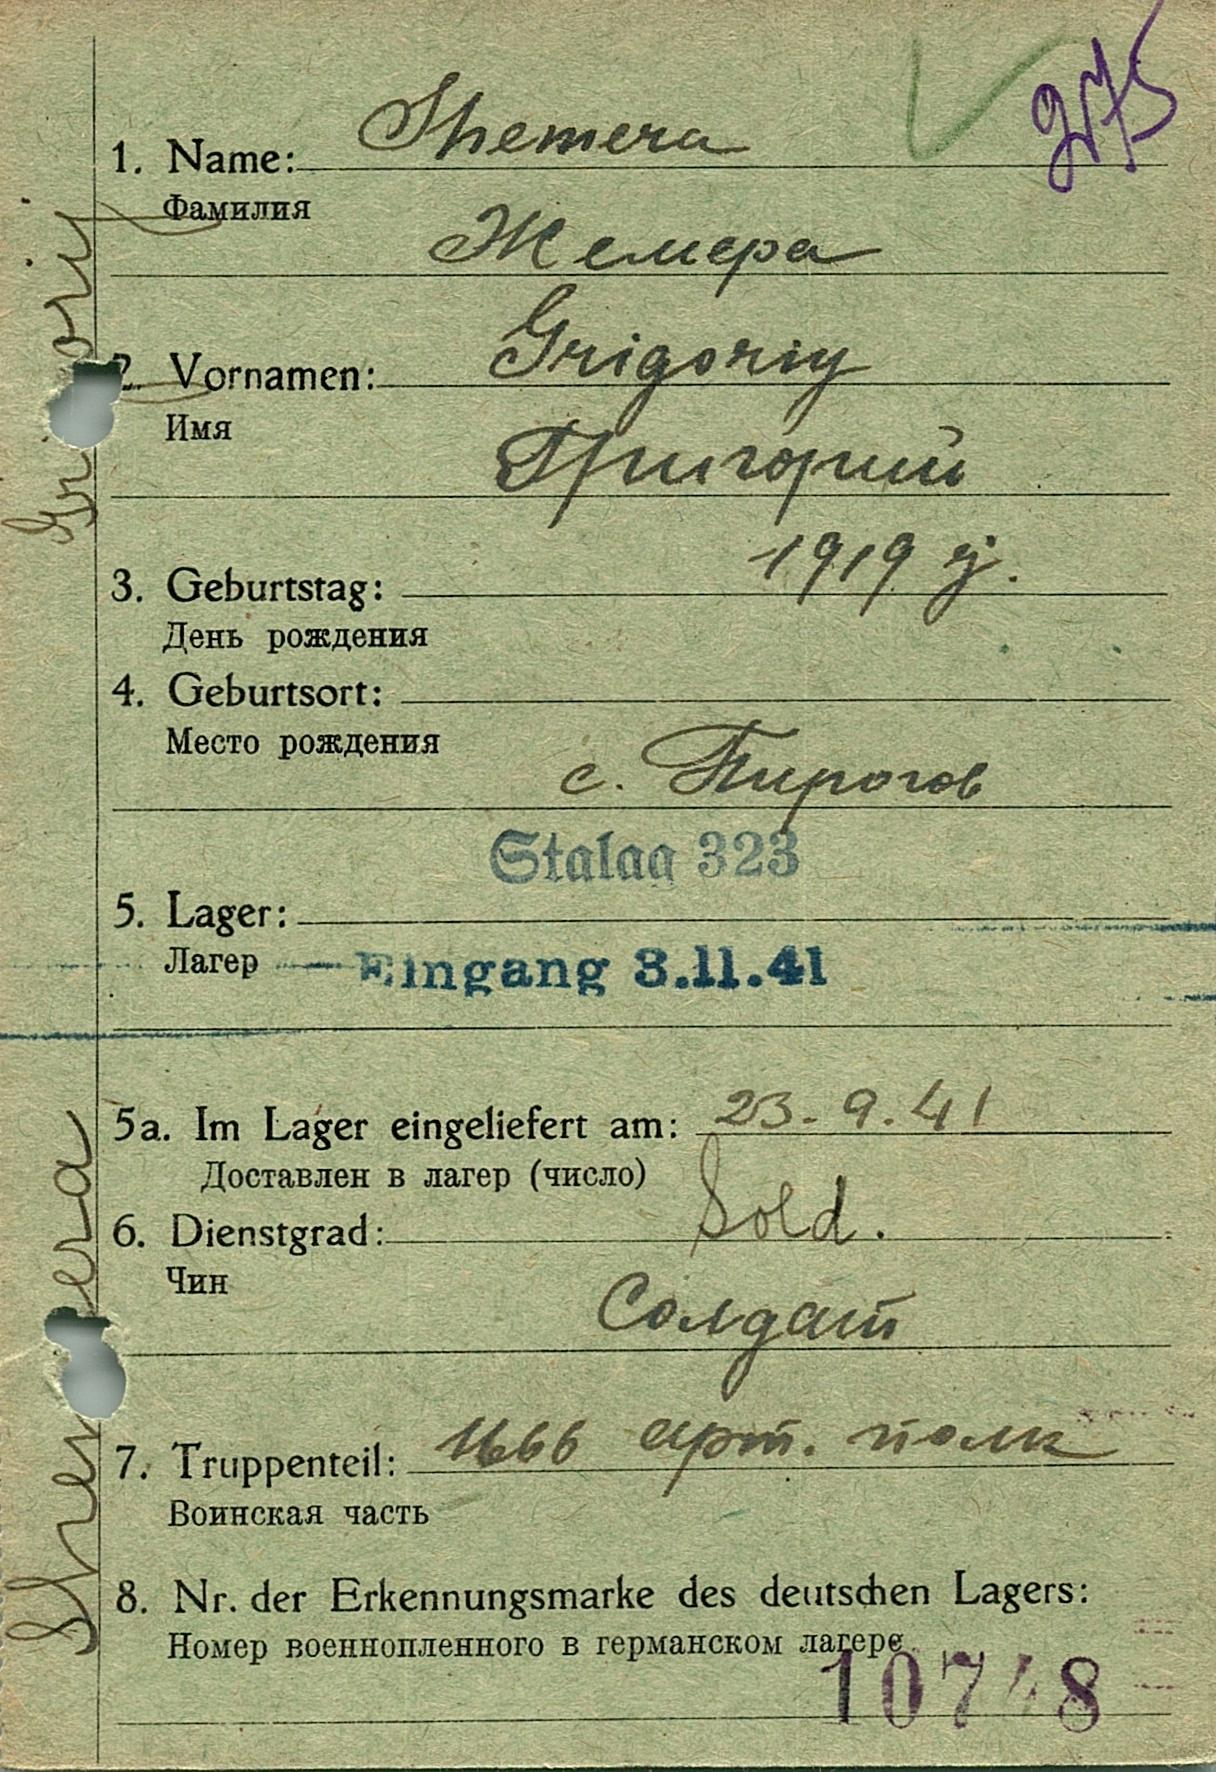 275
1. Name: Shemera
Фамилия
Жемера
2. Vornamen: Grigoriy
Имя
Григорий
3. Geburtstag: 1919 j.
День рождения
4. Geburtsort:
Место рождения
с. Пирогов
Stalag 323
5. Lager:
Лагер
Eingang 3.11.41
5a. Im Lager eingeliefert am: 23.9.41
Доставлен в лагер (число)
6. Dienstgrad: Sold.
Чин
Солдат
7. Truppenteil: арт. полк
Воинская часть
8. Nr. der Erkennungsmarke des deutschen Lagers:
Номер военнопленного в германском лагере
Shemera